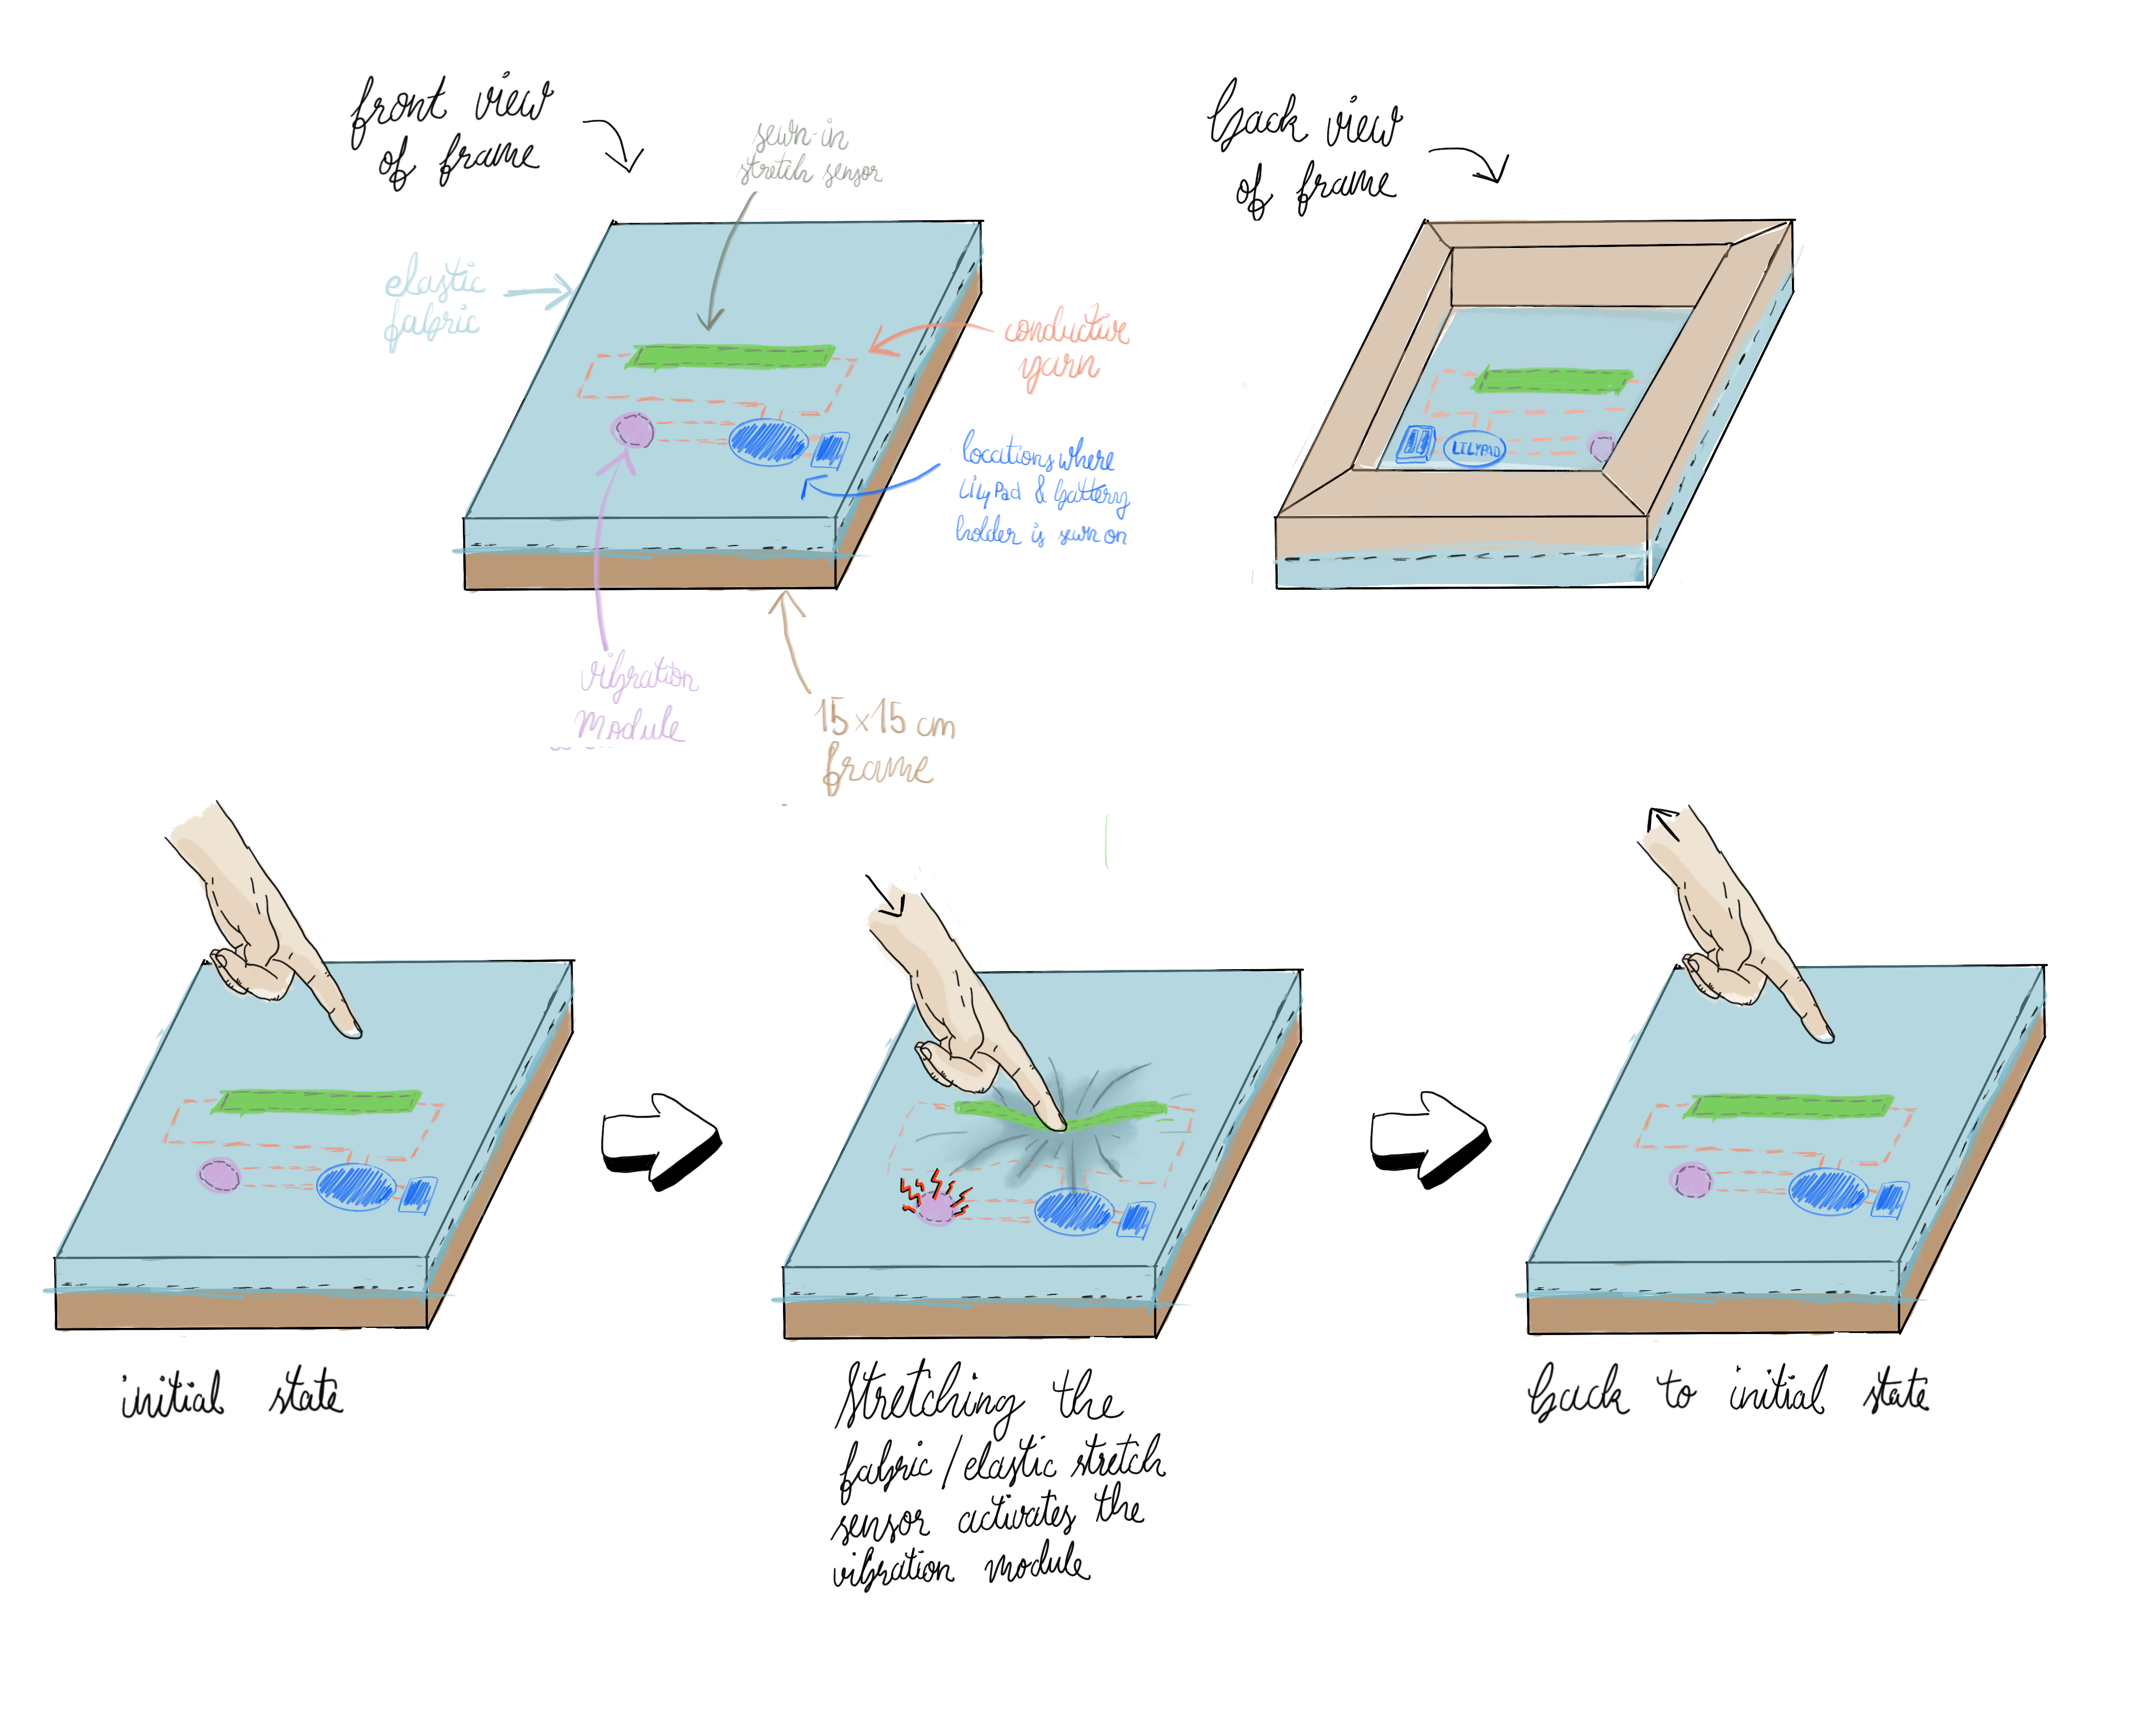 front view
of frame
sewn-in
stretch sensor
elastic
fabric
conductive
yarn
locations where
LilyPad & battery
holder is sewn on
vibration
module
15x15 cm
frame
back view
of frame
LILYPAD
initial state
Stretching the
fabric/elastic stretch
sensor activates the
vibration module
back to initial state